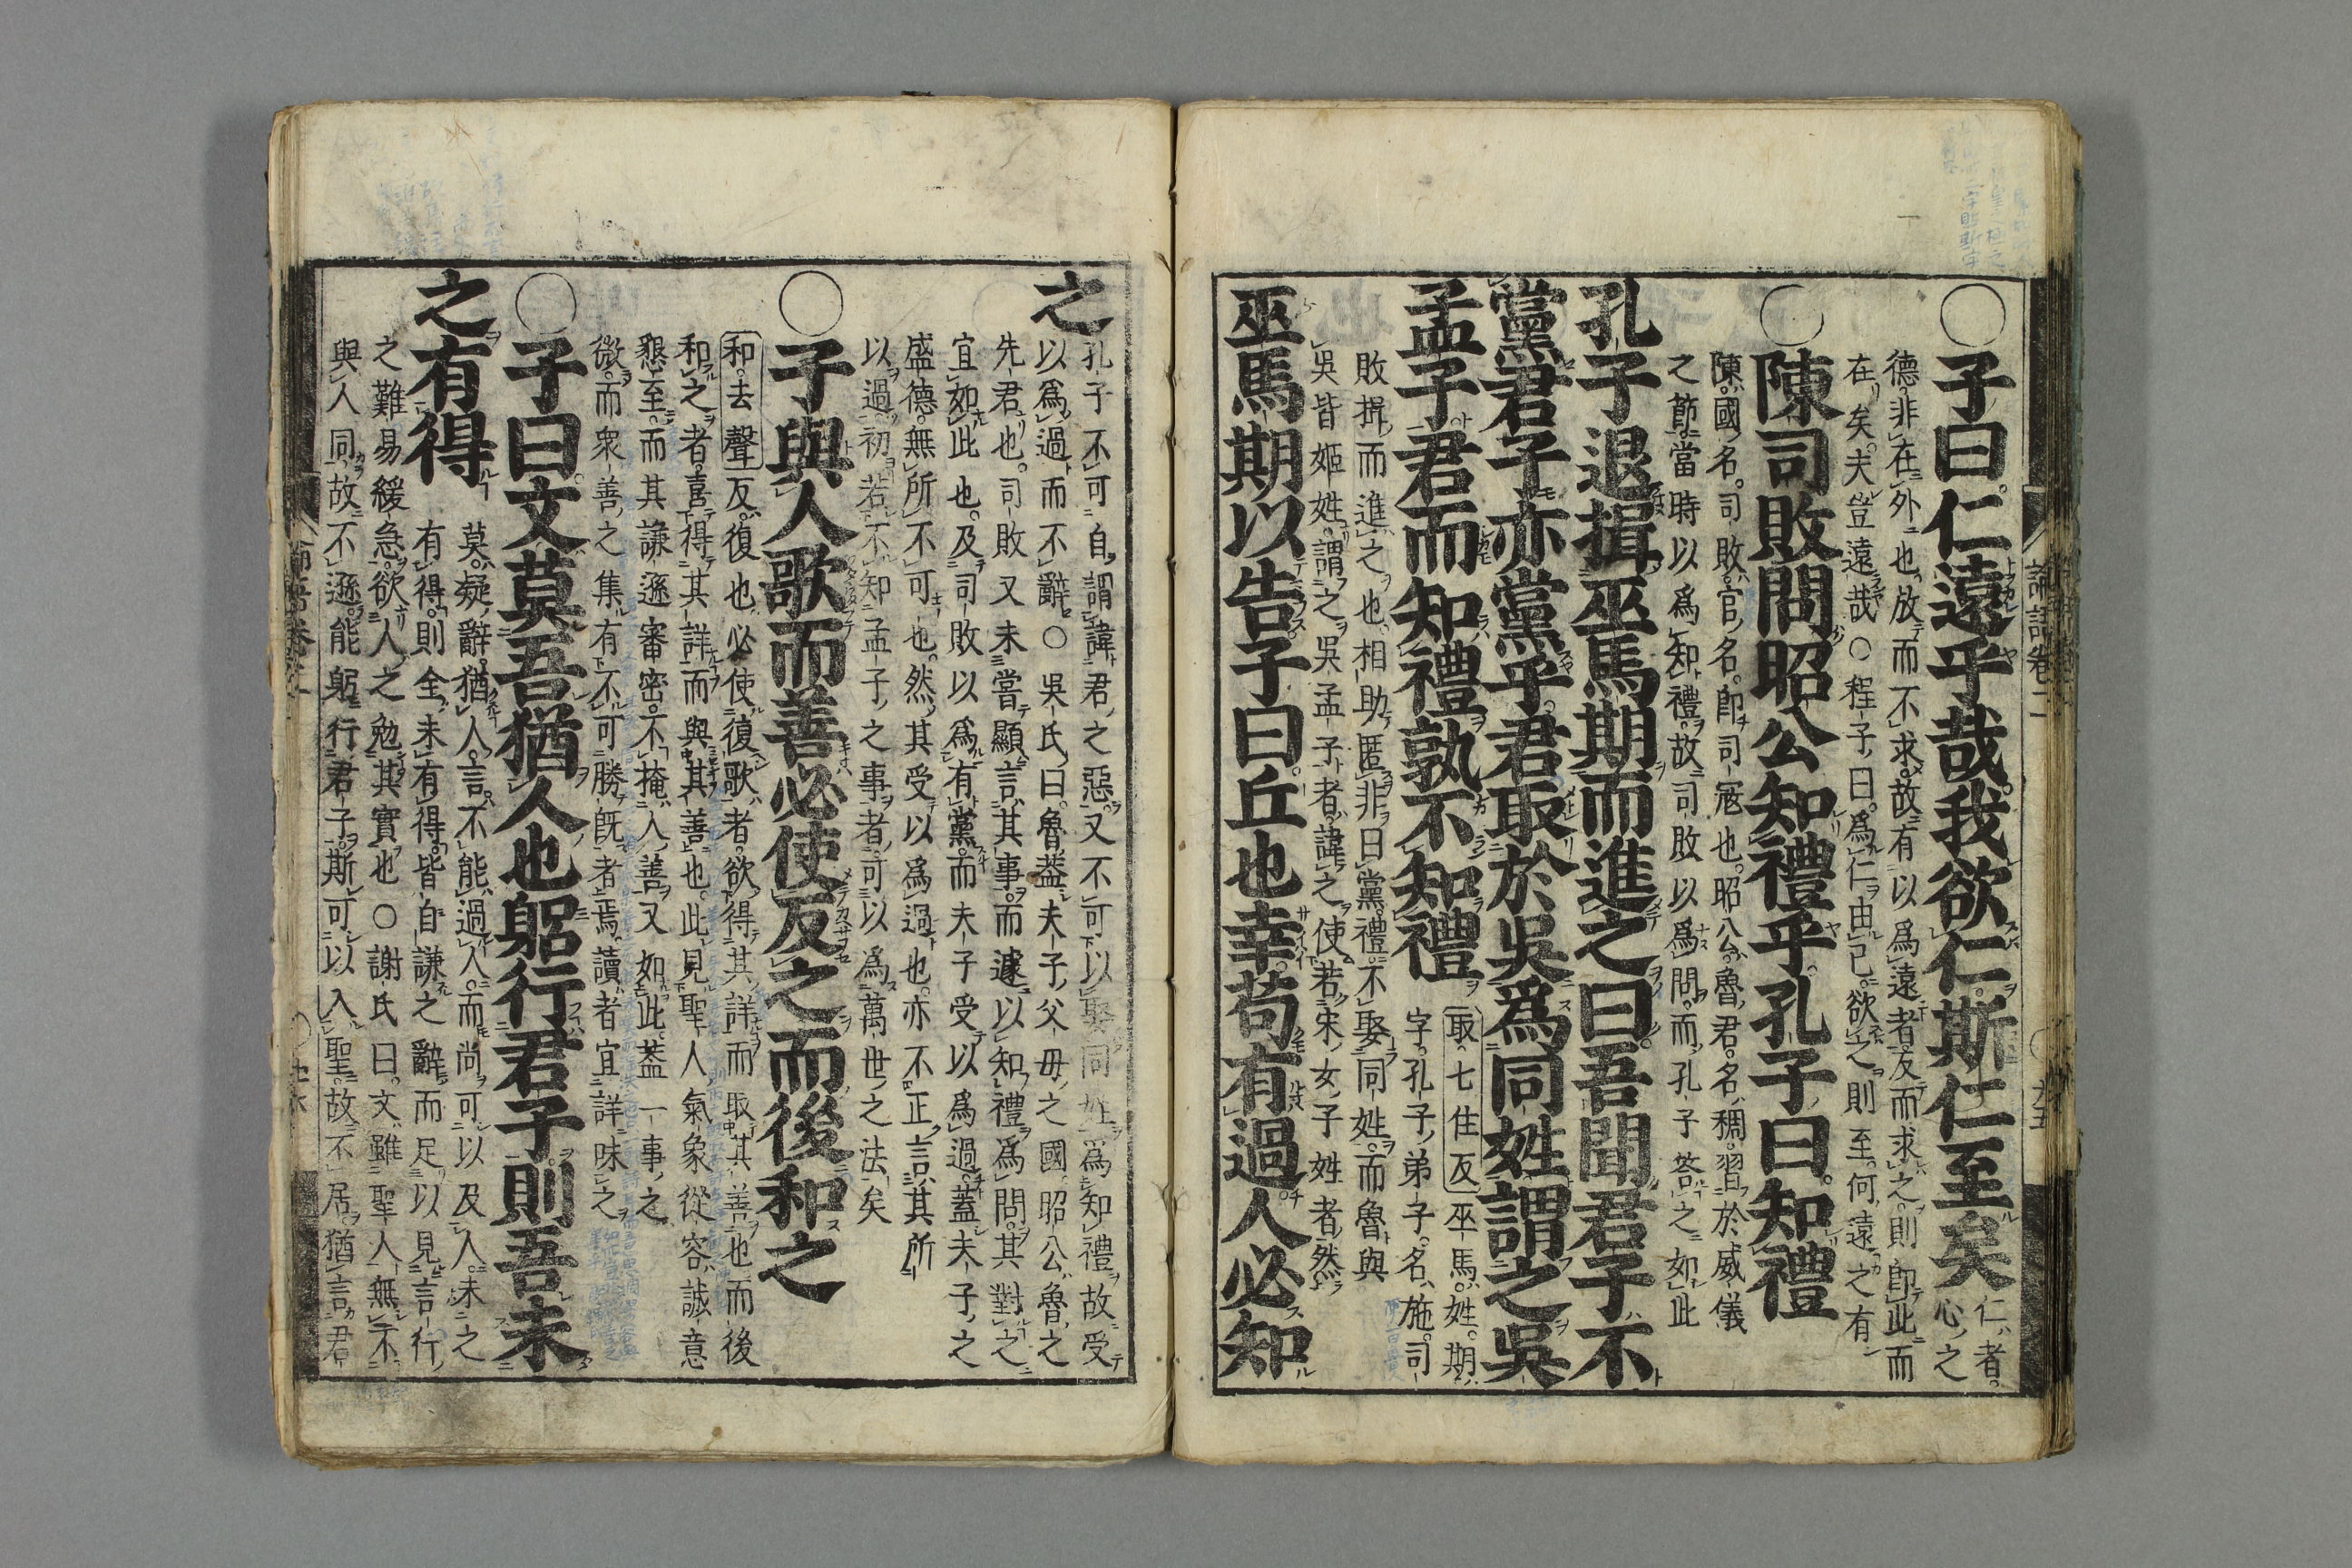 ○子曰。仁遠乎哉。我欲仁。斯仁至矣仁者。心之
德。非在外也。放而不求。故有以爲遠者。反而求之。則即此而
在矣。夫豈遠哉○程子曰。爲仁由己。欲之則至。何遠之有
○陳司敗問昭公知禮乎。孔子曰。知禮
陳國名。司敗官名。即司寇也。昭公。魯君。名稠。習於威儀
之節。當時以爲知禮。故司敗以爲問。而孔子答之如此
孔子退揖巫馬期而進之曰。吾聞君子不
黨君子亦黨乎。君取於吳爲同姓。謂之吳
孟子君而知禮孰不知禮取。七住反巫馬姓。期
字孔子弟子。名施。司
敗揖而進之也。相助匿非曰黨。禮不娶同姓。而魯與
吳皆姬姓。謂之吳孟子者。諱之使若宋女子姓者然
巫馬期以告子曰。丘也幸。苟有過人必知
之孔子不可自謂諱君之惡。又不可以娶同姓爲知禮故受
以爲過而不辭○吳氏曰。魯蓋夫子父母之國昭公魯之
先君也。司敗又未嘗顯言其事。而遽以知禮爲問。其對之
宜如此也。及司敗以爲有黨。而夫子受以爲過。蓋夫子之
盛德。無所不可也。然其受以爲過也。亦不正言其所
以過。初若不知孟子之事者。可以爲萬世之法矣
○子與人歌而善必使反之而後和之
和去聲反。復也必使復歌者。欲得其詳而取其善也而後
和之者。喜得其詳而與其善也。此見聖人氣象從容。誠意
懇至。而其謙遜審密。不掩人善又如此。蓋一事之
微。而衆善之集有不可勝既者焉。讀者宜詳味之
○子曰。文莫吾猶人也躬行君子則吾未
之有得莫。疑辭。猶人。言不能過人。而尚可以及人。未之
有得。則全未有得。皆自謙之辭而足以見言行
之難易緩急。欲人之勉其實也○謝氏曰。文雖聖人無不
與人同。故不遜。能躬行君子。斯可以入聖。故不居。猶言君
論語卷二